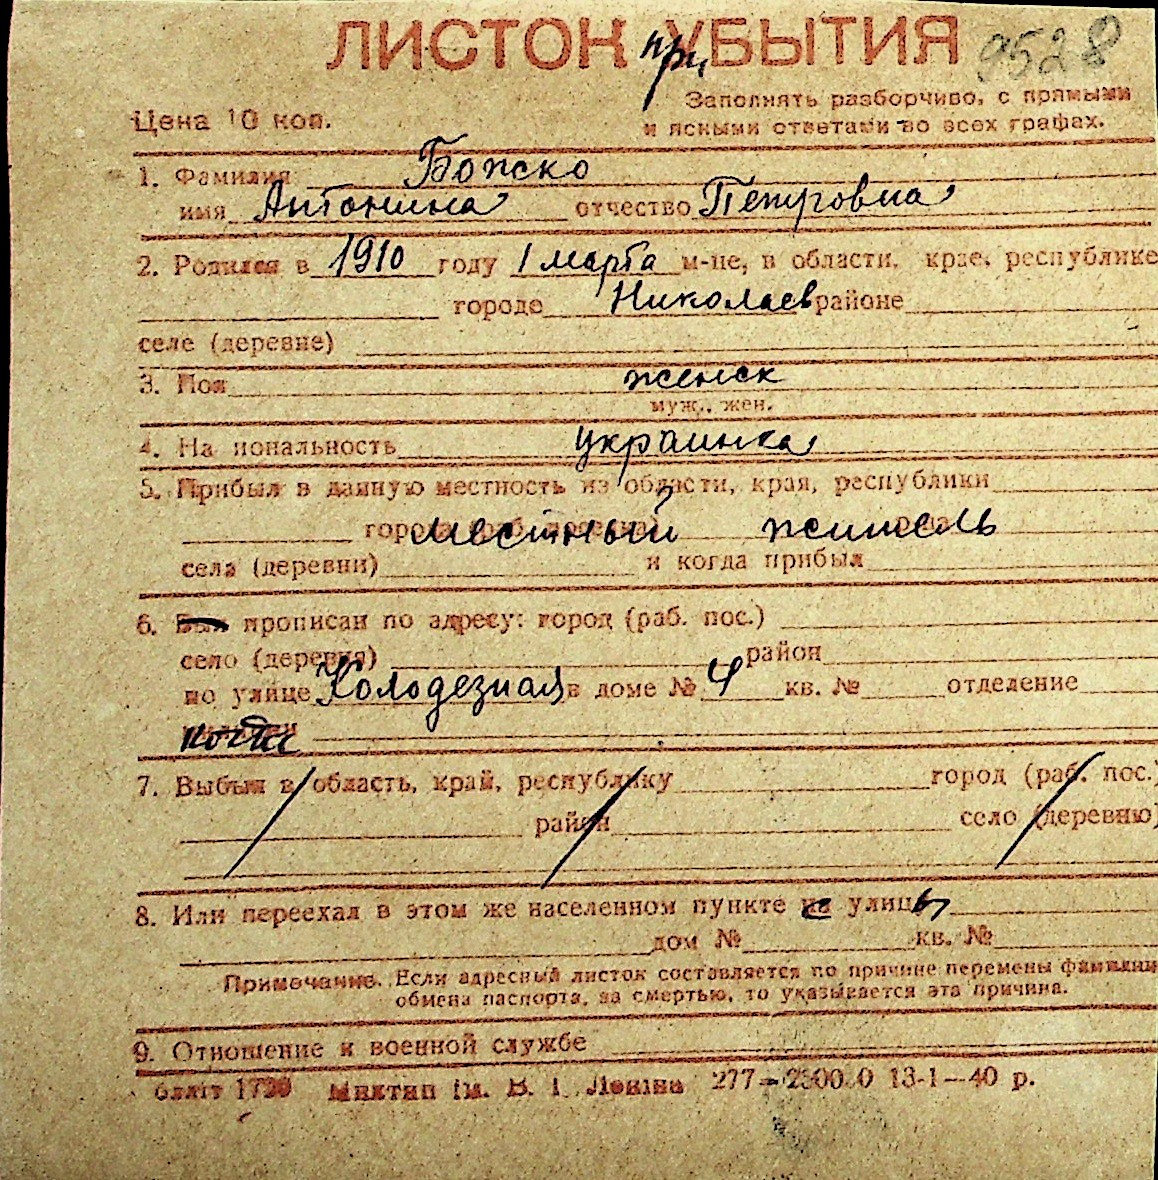 ЛИСТОК при УБЫТИЯ 9528
Цена 10 коп.
Заполнять разборчиво, с прямыми
и ясными ответами во всех графах.
1. Фамилия Божко
имя Антонина отчество Петровна
2. Родился в 1910 году 1 марта м-це, в области, крае, республике
городе Николаев районе
селе (деревне)
3. Пол женск
муж., жен.
4. Национальность украинка
5. Прибыл в данную местность из области, края, республики
города местный житель
села (деревни) и когда прибыл
6. Был прописан по адресу: город (раб. пос.)
село (деревня) район
по улице Колодезная в доме № 4 кв. № отделение
7. Выбыл в область, край, республику город (раб. пос.)
район село (деревню)
8. Или переехал в этом же населенном пункте с улицы
дом № кв. №
Примечание. Если адресный листок составляется по причине перемены фамилии,
обмена паспорта, за смертью, то указывается эта причина.
9. Отношение к военной службе
Облліт 1730 Миктип ім. В. І. Леніна 277—250000 13-1—40 р.